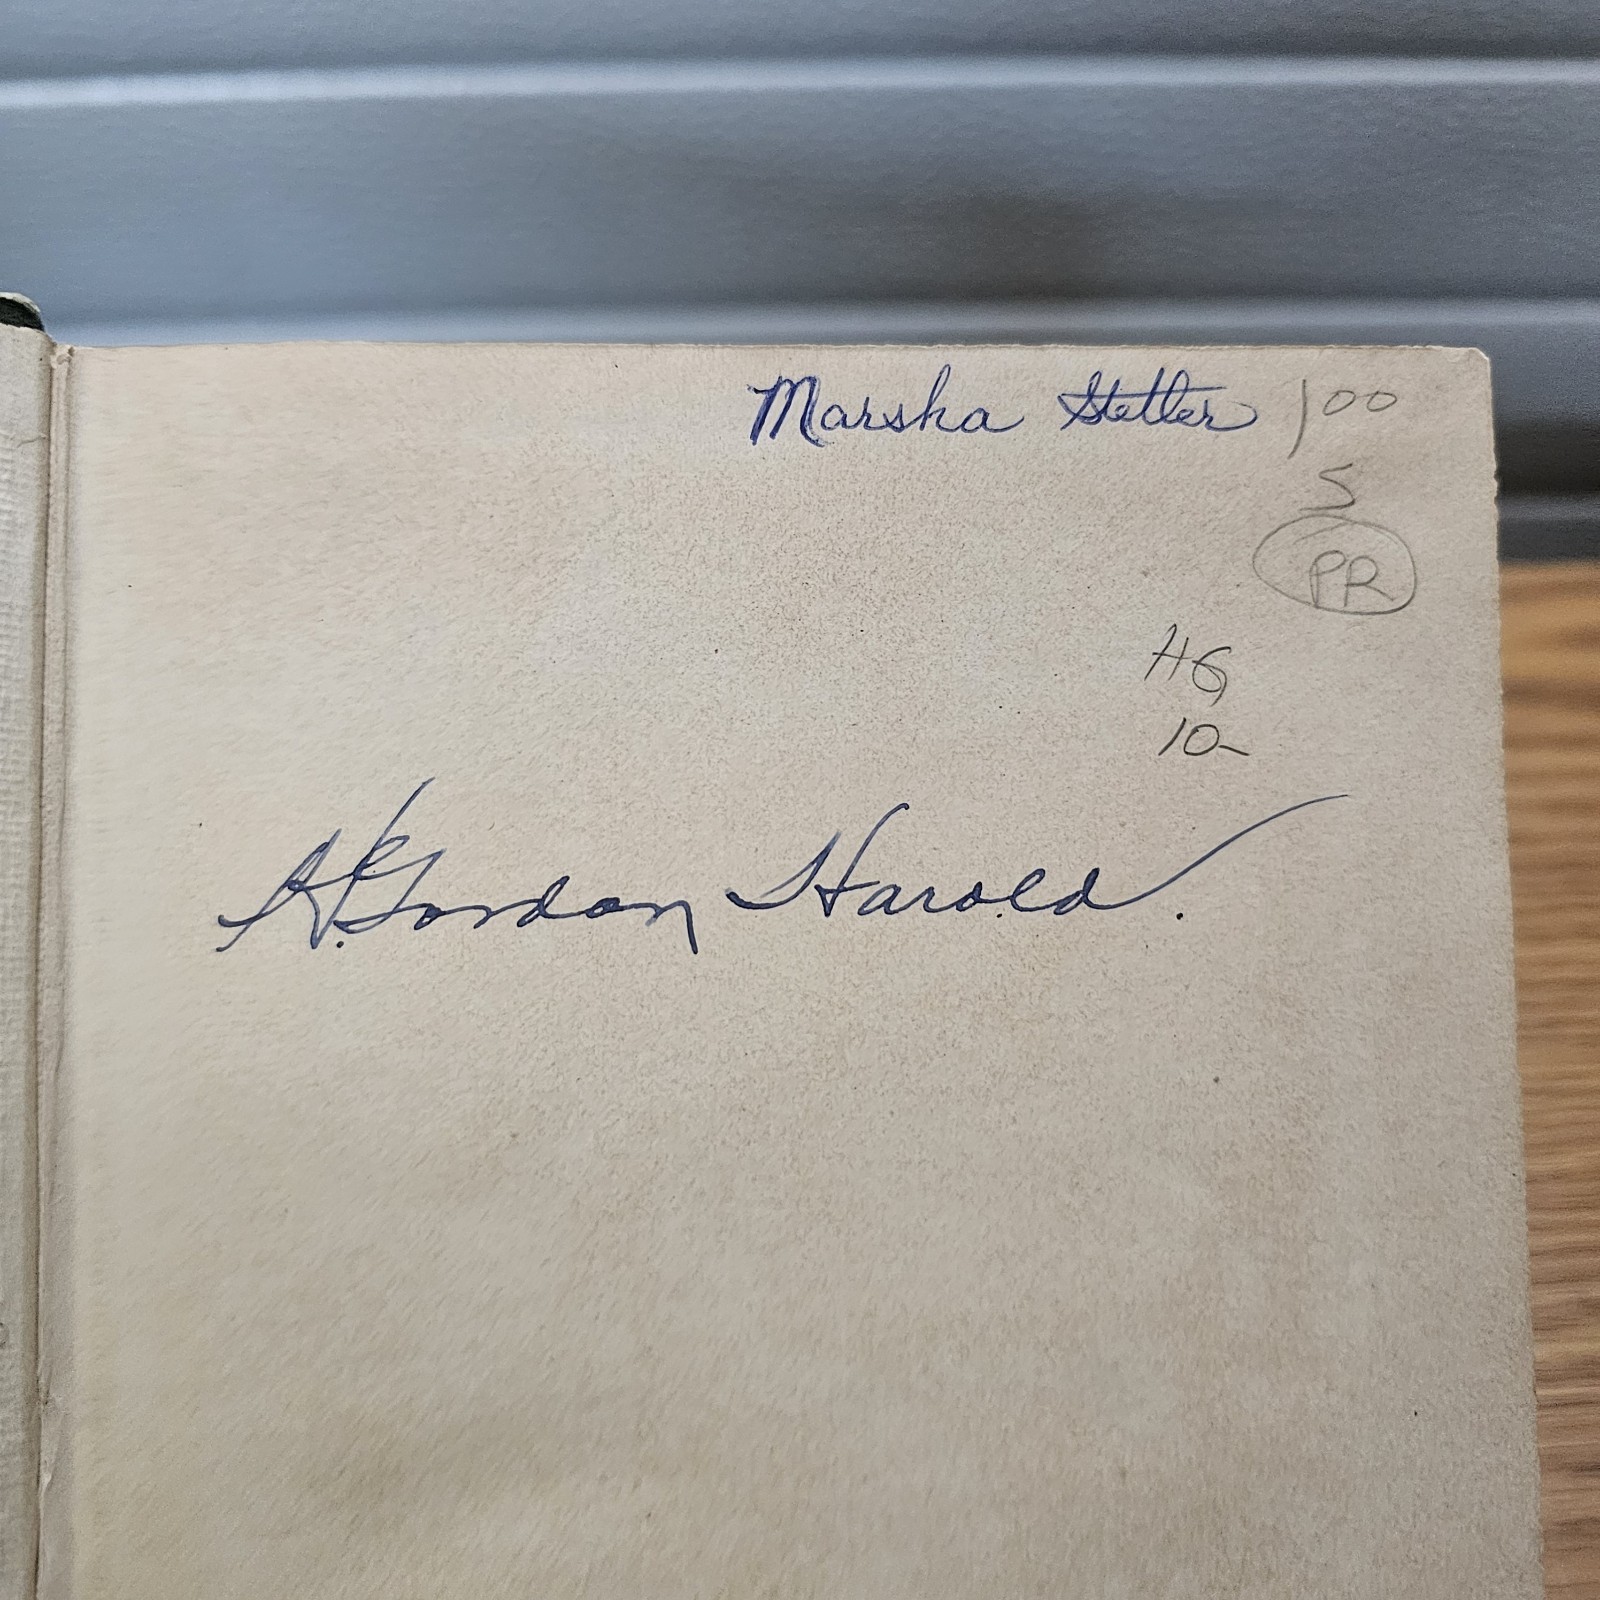 Marsha Stetler 100
S
PR
HG
10-
H. Gordon Harold.